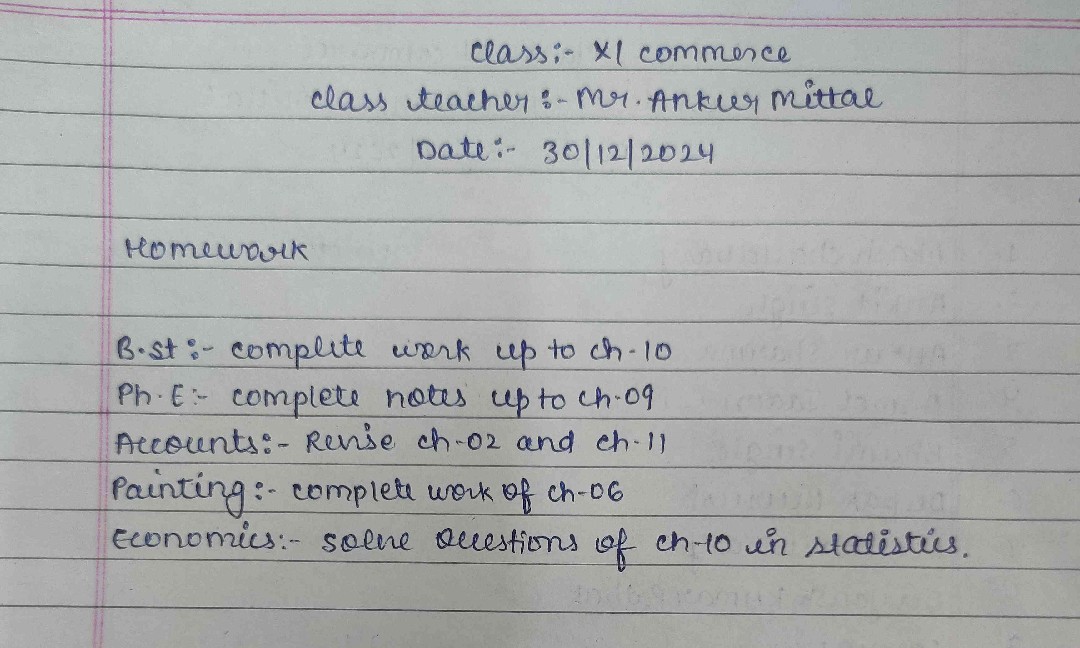 Class:- XI commerce
Class teacher:- Mr. Ankur Mittal
Date:- 30/12/2024
Homework
B.st:- complete work up to ch-10
Ph.E:- complete notes up to ch-09
Accounts:- Revise ch-02 and ch-11
Painting:- complete work of ch-06
Economics:- solve Questions of ch-10 in statistics.